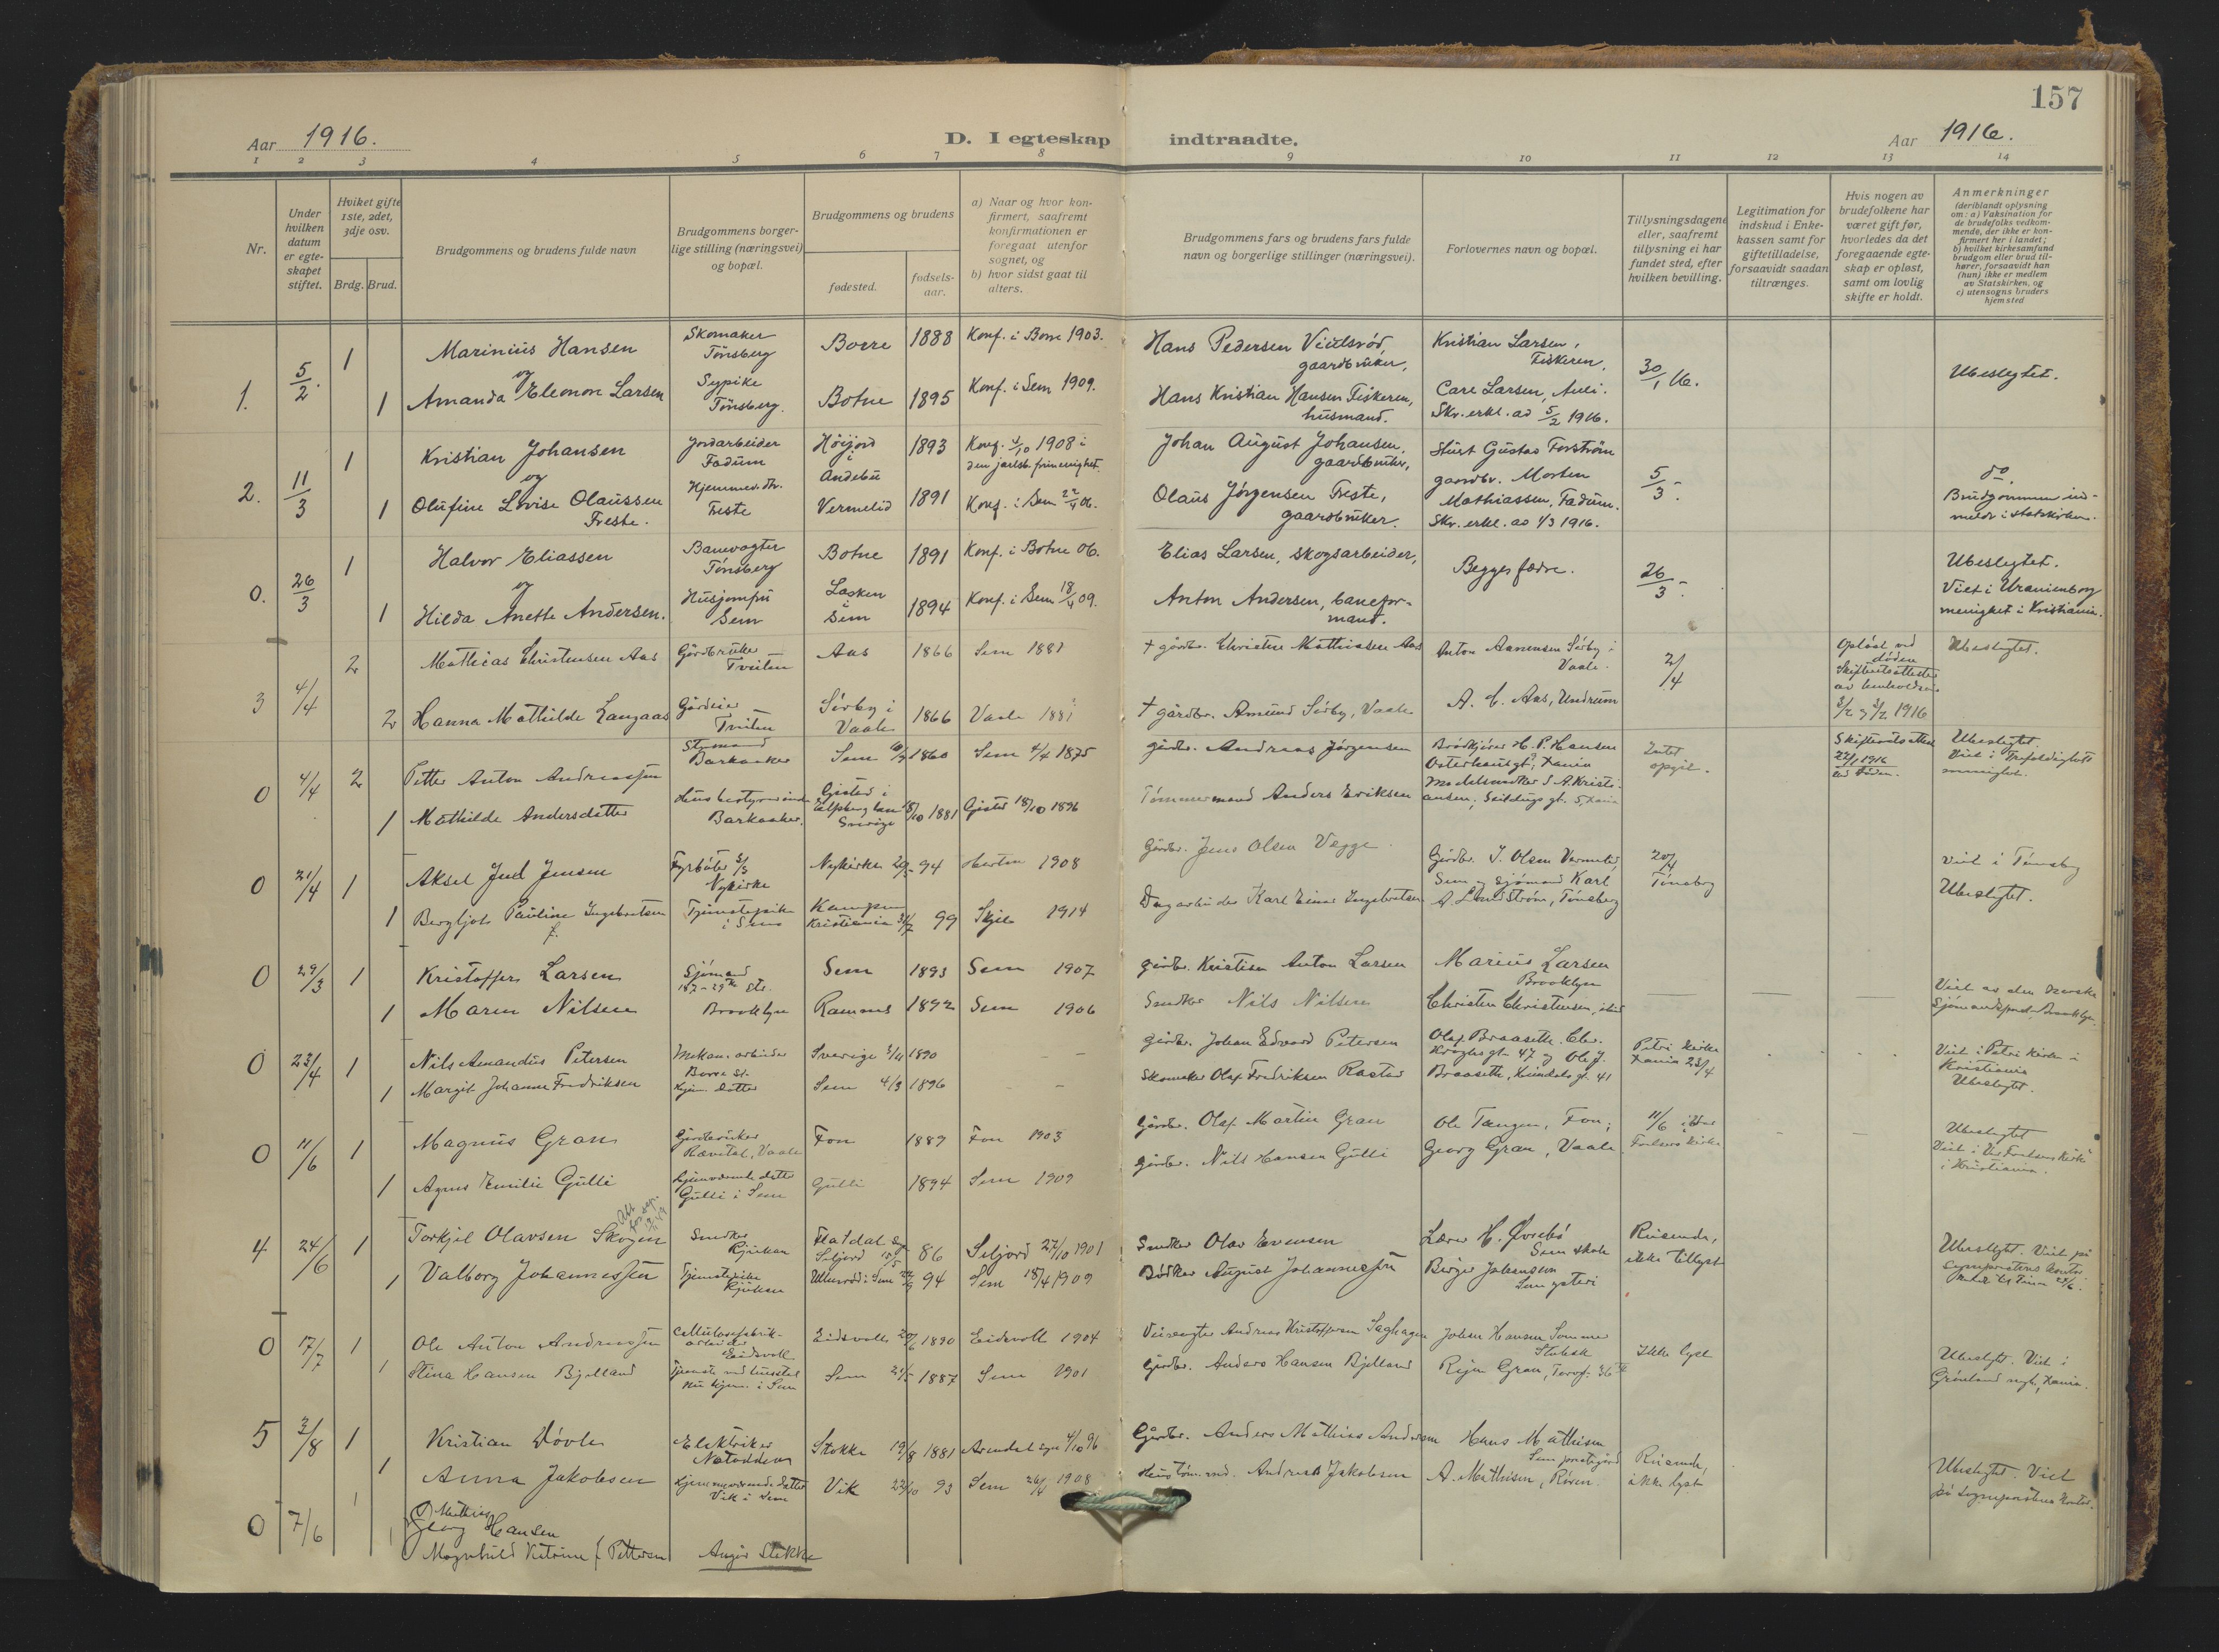 157
Aar 1916.
D. I egteskap indtraadte.
Aar 1916.
1 2 3 4 5 6 7 8 9 10 11 12 13 14
Nr.
Under
hvilken
datum
er egte-
skapet
stiftet.
Hviket gifte
1ste, 2det,
3dje osv.
Brdg. Brud.
Brudgommens og brudens fulde navn
Brudgommens borger-
lige stilling (næringsvei)
og bopæl.
Brudgommens og brudens
fødested.
fødsels-
aar.
a) Naar og hvor kon-
firmert, saafremt
konfirmationen er
foregaat utenfor
sognet, og
b) hvor sidst gaat til
alters.
Brudgommens fars og brudens fars fulde
navn og borgerlige stillinger (næringsvei).
Forlovernes navn og bopæl.
Tillysningsdagene
eller, saafremt
tillysning ei har
fundet sted, efter
hvilken bevilling.
Legitimation for
indskud i Enke-
kassen samt for
giftetilladelse,
forsaavidt saadan
tiltrænges.
Hvis nogen av
brudefolkene har
været gift før,
hvorledes da det
foregaaende egte-
skap er opløst,
samt om lovlig
skifte er holdt.
Anmerkninger
(deriblandt oplysning
om: a) Vaksination for
de brudefolks vedkom-
mende, der ikke er kon-
firmert her i landet;
b) hvilket kirkesamfund
brudgom eller brud til-
hører, forsaavidt han
(hun) ikke er medlem
av Statskirken, og
c) utensogns bruders
hjemsted
1. 5/2. 1 Marinius Hansen
og
1 Amanda Eleonore Larsen
Skomaker
Tønsberg
Sypike
Tønsberg.
Borre 1888 Konf. i Borre 1903.
Botne 1895 Konf. i Sem 1909.
Hans Pedersen
gaardbruker,
Hans Kristian Hansen Fiskeren,
husmand.
Kristian Larsen,
Fiskeren,
Carl Larsen, Auli.
Skr. erkl. ad 5/2 1916.
30/1 16.
Ubeslegtet.
2. 11/3 1 Kristian Johansen
og
1 Olufine Lovise Olaussen
Freste.
Jordarbeider
Fadum
Hjemmev. dtr.
Freste
Høijord
i
Andebu
1893 Konf. 4/10 1908 i
den jarlsb. frimenighet.
Vermelid 1891 Konf. i Sem 22/4 06.
Johan August Johansen,
gaardbruker,
Olaus Jørgensen Freste,
gaardbruker.
Gustav Forström
gaardbr. Morten
Mathiassen, Fadum.
Skr. erkl. ad 4/3 1916.
5/3 -
do.
Brudgommen ind-
meldt i statskirken.
0. 26/3 1 Halvor Eliassen
og
1 Hilda Anette Andersen.
Banevogter
Tønsberg
Husjomfru
Sem
Botne 1891 Konf. i Botne 06.
Lasken
i
Sem
1894 Konf. i Sem 18/4 09.
Elias Larsen, skogsarbeider,
Anton Andersen, banefor-
mand.
Begges fædre.
26/3 -
Ubeslegtet.
Viet i Uranienborg
menighet i Kristiania.
3 4/4 2 Mathias Christensen Aas
2 Hanna Mathilde Langaas
Gårdbruker
Tveiten
Gårdeier
Tveiten
Aas 1866 Sem 1881
Sørby i
Vaale
1866 Vaale 1881
† gårdbr. Christen Mathiassen Aas
† gårdbr. Amund Sørby, Vaale
Anton Aanensen Sørby i
Vaale.
A. C. Aas, Undrum
2/4
Opløst ved
døden
Skifteretsattester
av henholdsvis
Ubeslegtet.
0 4/4 2 Petter Anton Andreassen
1 Mathilde Andersdatter
Styrmand
Barkaaker
Husbestyrerinde
Barkaaker.
Sem 1860 Sem 4/4 1875
Gjestad i
Sverige
1881 Gjestad 18/10 1896
gårdbr. Andreas Jørgensen
Tømmermand Anders Eriksen
Brødkjører H. P. Hansen
Osterhausgt, Xania
Intet
opgit.
Skifteretsattest
22/1 1916
ved døden.
Ubeslegtet.
Viet i Trefoldighets
menighet.
0 21/4 1 Aksel Juel Jensen
1 Bergljot Pauline Ingebretsen
f.
Fyrbøter
Nykirke
Tjenestepike
i Sem
Nykirke 94 Horten 1908
Kampen
Kristiania 99 Skjee 1914
Gårdbr. Jens Olsen Vegge.
Dagarbeider Karl Einar Ingebretsen
Gårdbr. J. Olsen Vermelid
Sem og sjømand Karl
A. Lindstrøm, Tønsberg
20/4
Tønsberg
Viet i Tønsberg
Ubeslegtet.
0 29/3 1 Kristoffer Larsen
1 Maren Nilsen
Sjømand
187 - 29th str.
Brooklyn
Sem 1893 Sem 1907
Ramnes 1892 Sem 1906
gårdbr. Kristian Anton Larsen
Snedker Nils Nilsen
Marius Larsen
Brooklyn
Christen Christensen,
Viet av den norske
Sjømandsprest. Brooklyn.
0 23/4 1 Nils Amandus Petersen
1 Margit Johanne Fredriksen
Mekan. arbeider
Borre st.
Hjm. datter
Sverige 1890
Sem 4/3 1896
gårdbr. Johan Edvard Petersen
Skomaker Olaf Fredriksen Rastad
Olaf Braaseth, Chr.
Kroghs gt 47 og Ole J.
Braaseth, gt. 41
Petri kirke
Xania 23/4
Viet i Petri kirke i
Kristiania
Ubeslegtet.
0 11/6 1 Magnus Gran
1 Agnes Emilie Gulli
Gårdbruker
Rævetal, Vaale
Hjemmeværende datter
Gulli i Sem
Fon 1889 Fon 1903
Gulli 1894 Sem 1909
Gårdbr. Olaf Martin Gran
gårdbr. Nils Hansen Gulli
Ole Tangen, Fon;
Georg Gran, Vaale
11/6 i Vor
Frelsers kirke
Ubeslegtet
Viet i Vor Frelsers kirke
i Kristiania.
4 24/6 1 Torkjel Olavsen Skogen
1 Valborg Johannessen
Snedker
Rjukan
Tjenestepike
Rjukan
Flatdal
Seljord 86 Seljord 27/10 1901
i Sem 94 Sem 18/4 1909
Snedker Olav Evensen
Bødker August Johannessen
Lærer H. Øvrebø
Sem skole
Birger Johansen
Sem ysteri
Reisende,
ikke tillyst
Ubeslegtet. Viet på
sogneprestens kontor
0 17/7 1 Ole Anton Andreassen
1 Stina Hansen Bjelland
Cellulosefabrik-
arbeider
Eidsvoll
Eidsvoll 1890 Eidsvoll 1904
Sem 1887 Sem 1901
Andreas Kristoffersen Saghagen
Gårdbr. Anders Hansen Bjelland
Johan Hansen Sommer
Stabæk
Ikke lyst
Ubeslegtet. Viet i
Grønland mgh., Xania.
5 3/8 1 Kristian Døvle
1 Anna Jakobsen
Elektriker
Notodden
Hjemmeværende datter
Vik i Sem
Stokke 19/8 1881 Arendal 4/10 96
Vik 93 Sem 26/4 1908
Gårdbr. Anders Mathias Andersen
Andreas Jakobsen
Hans Mathisen
Sem prestegård
A. Mathisen, Røren
Reisende,
ikke lyst
Ubeslegtet. Viet
på sogneprestens kontor.
0 7/6 1 Mathias
Georg Hansen
1 Magnhild Katrine f. Pettersen
Angir Stokke